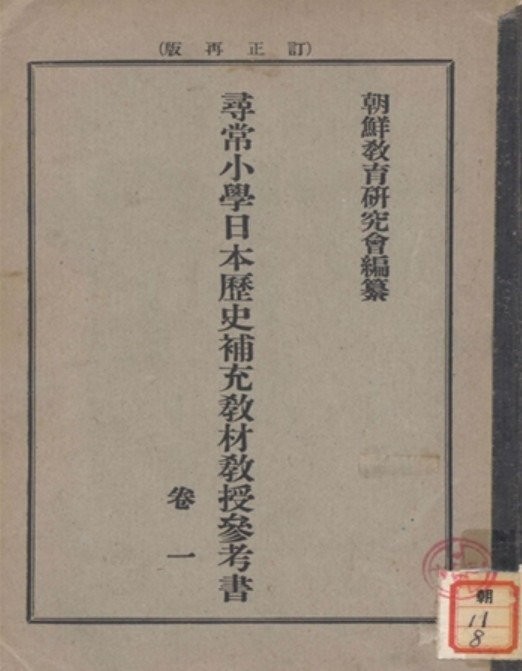 (訂正再版)
朝鮮敎育硏究會編纂
尋常小學日本歷史補充敎材敎授參考書
卷一
朝
11
8